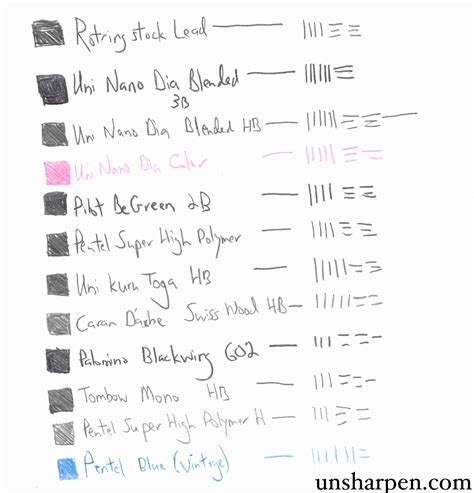 Rotring stock Lead
Uni Nano Dia Blended
3B
Uni Nano Dia Blended HB
Uni Nano Dia Color
Pilot BeGreen 2B
Pentel Super High Polymer
Uni Kuru Toga HB
Caran D'ache Swiss Wood HB
Palomino Blackwing 602
Tombow Mono HB
Pentel Super High Polymer H
Pentel Blue (vintage)
unsharpen.com